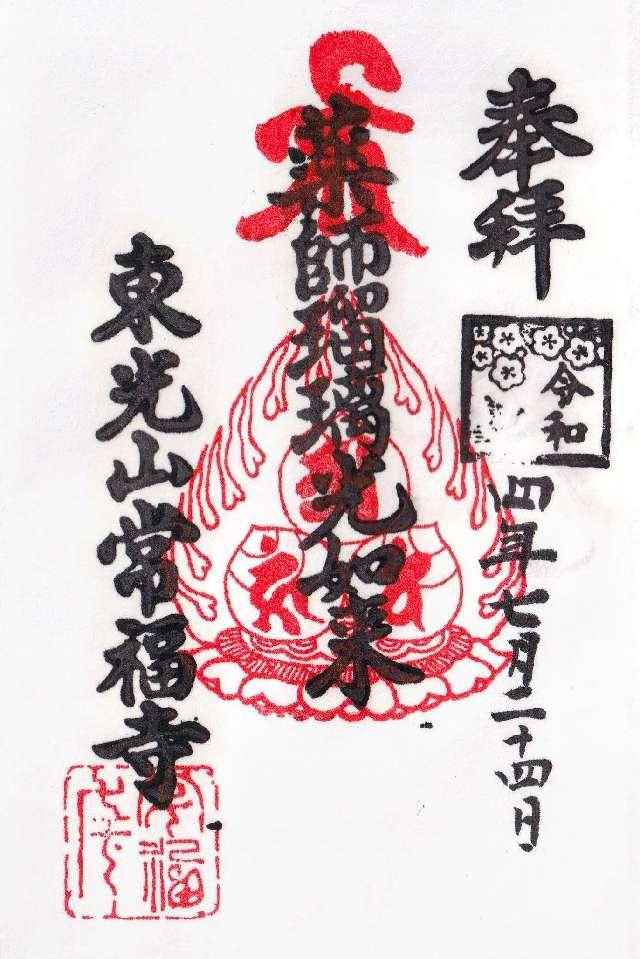 奉拝
令和
四年七月二十四日
薬師瑠璃光如来
東光山常福寺